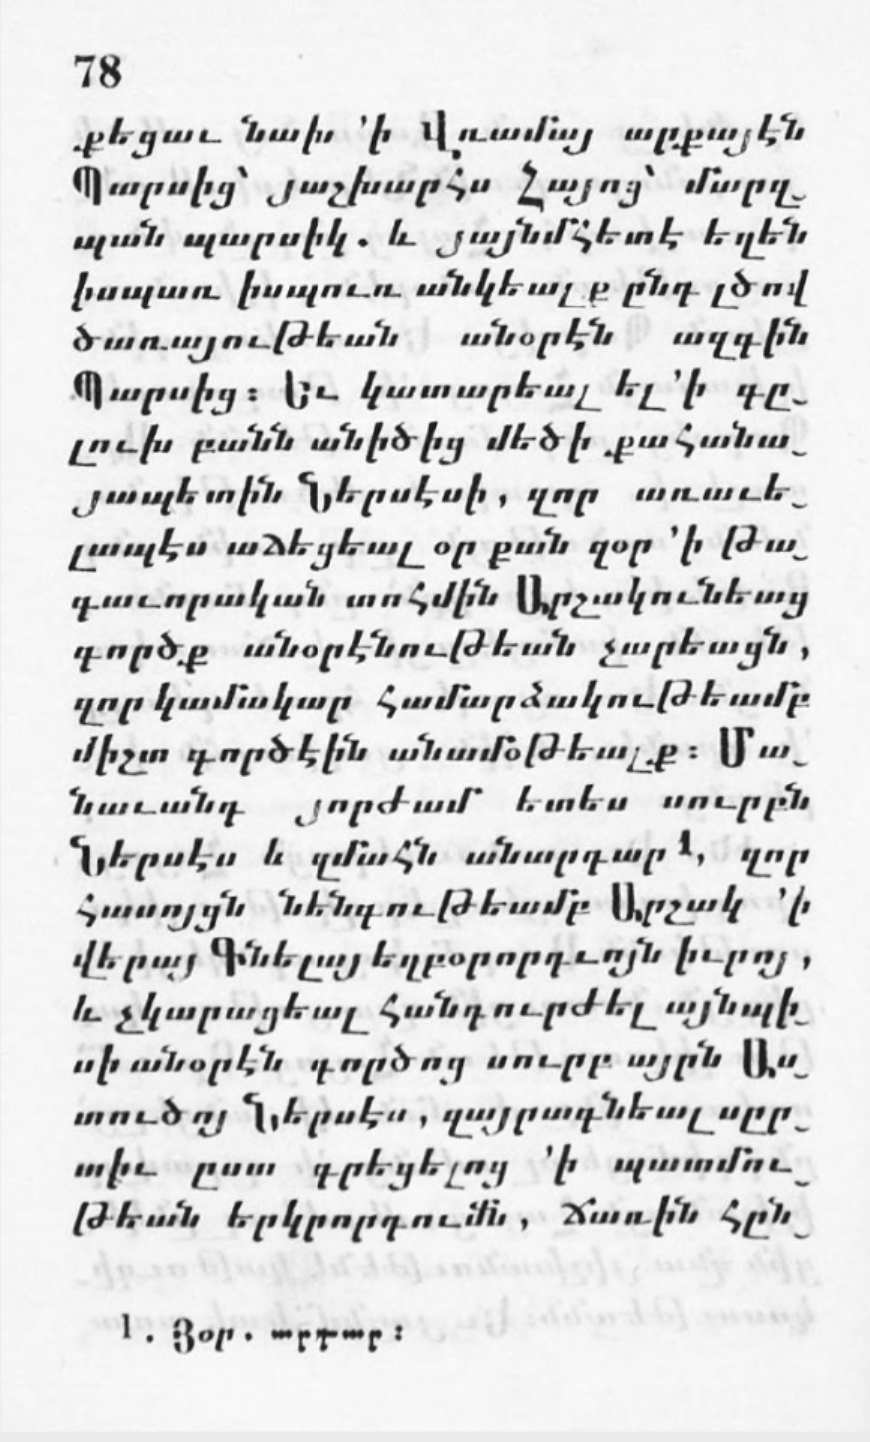 78
քեցաւ նախ ՚ի Վռամայ արքայէն
Պարսից՝ յաշխարհս Հայոց՝ մարզ֊
պան պարսիկ. և յայնմհետէ եղեն
իսպառ իսպուռ անկեալք ընդ լծով
ծառայութեան անօրէն ազգին
Պարսից։ Եւ կատարեալ ել ՚ի գը֊
լուխ բանն անիծից մեծի քահանա֊
յապետին Ներսէսի, զոր առաւե֊
լապէս աճեցեալ օր քան զօր ՚ի թա֊
գաւորական տոհմին Արշակունեաց
գործք անօրէնութեան չարեացն,
զոր կամակար համարձակութեամբ
միշտ գործէին անամօթեալք։ Մա֊
նաւանդ յորժամ ետես սուրբն
Ներսէս և զմահն անարգար¹, զոր
հասոյցն նենգութեամբ Արշակ ՚ի
վերայ Գնելայ եղբօրորդւոյն իւրոյ,
և չկարացեալ հանդուրժել այնպի֊
սի անօրէն գործոց սուրբ այրն Աս֊
տուծոյ Ներսէս, զայրագնեալ սըր֊
տիւ ըստ գրեցելոց ՚ի պատմու֊
թեան երկրորդումն, ճառին հըն֊
1. Յօր. արդար։